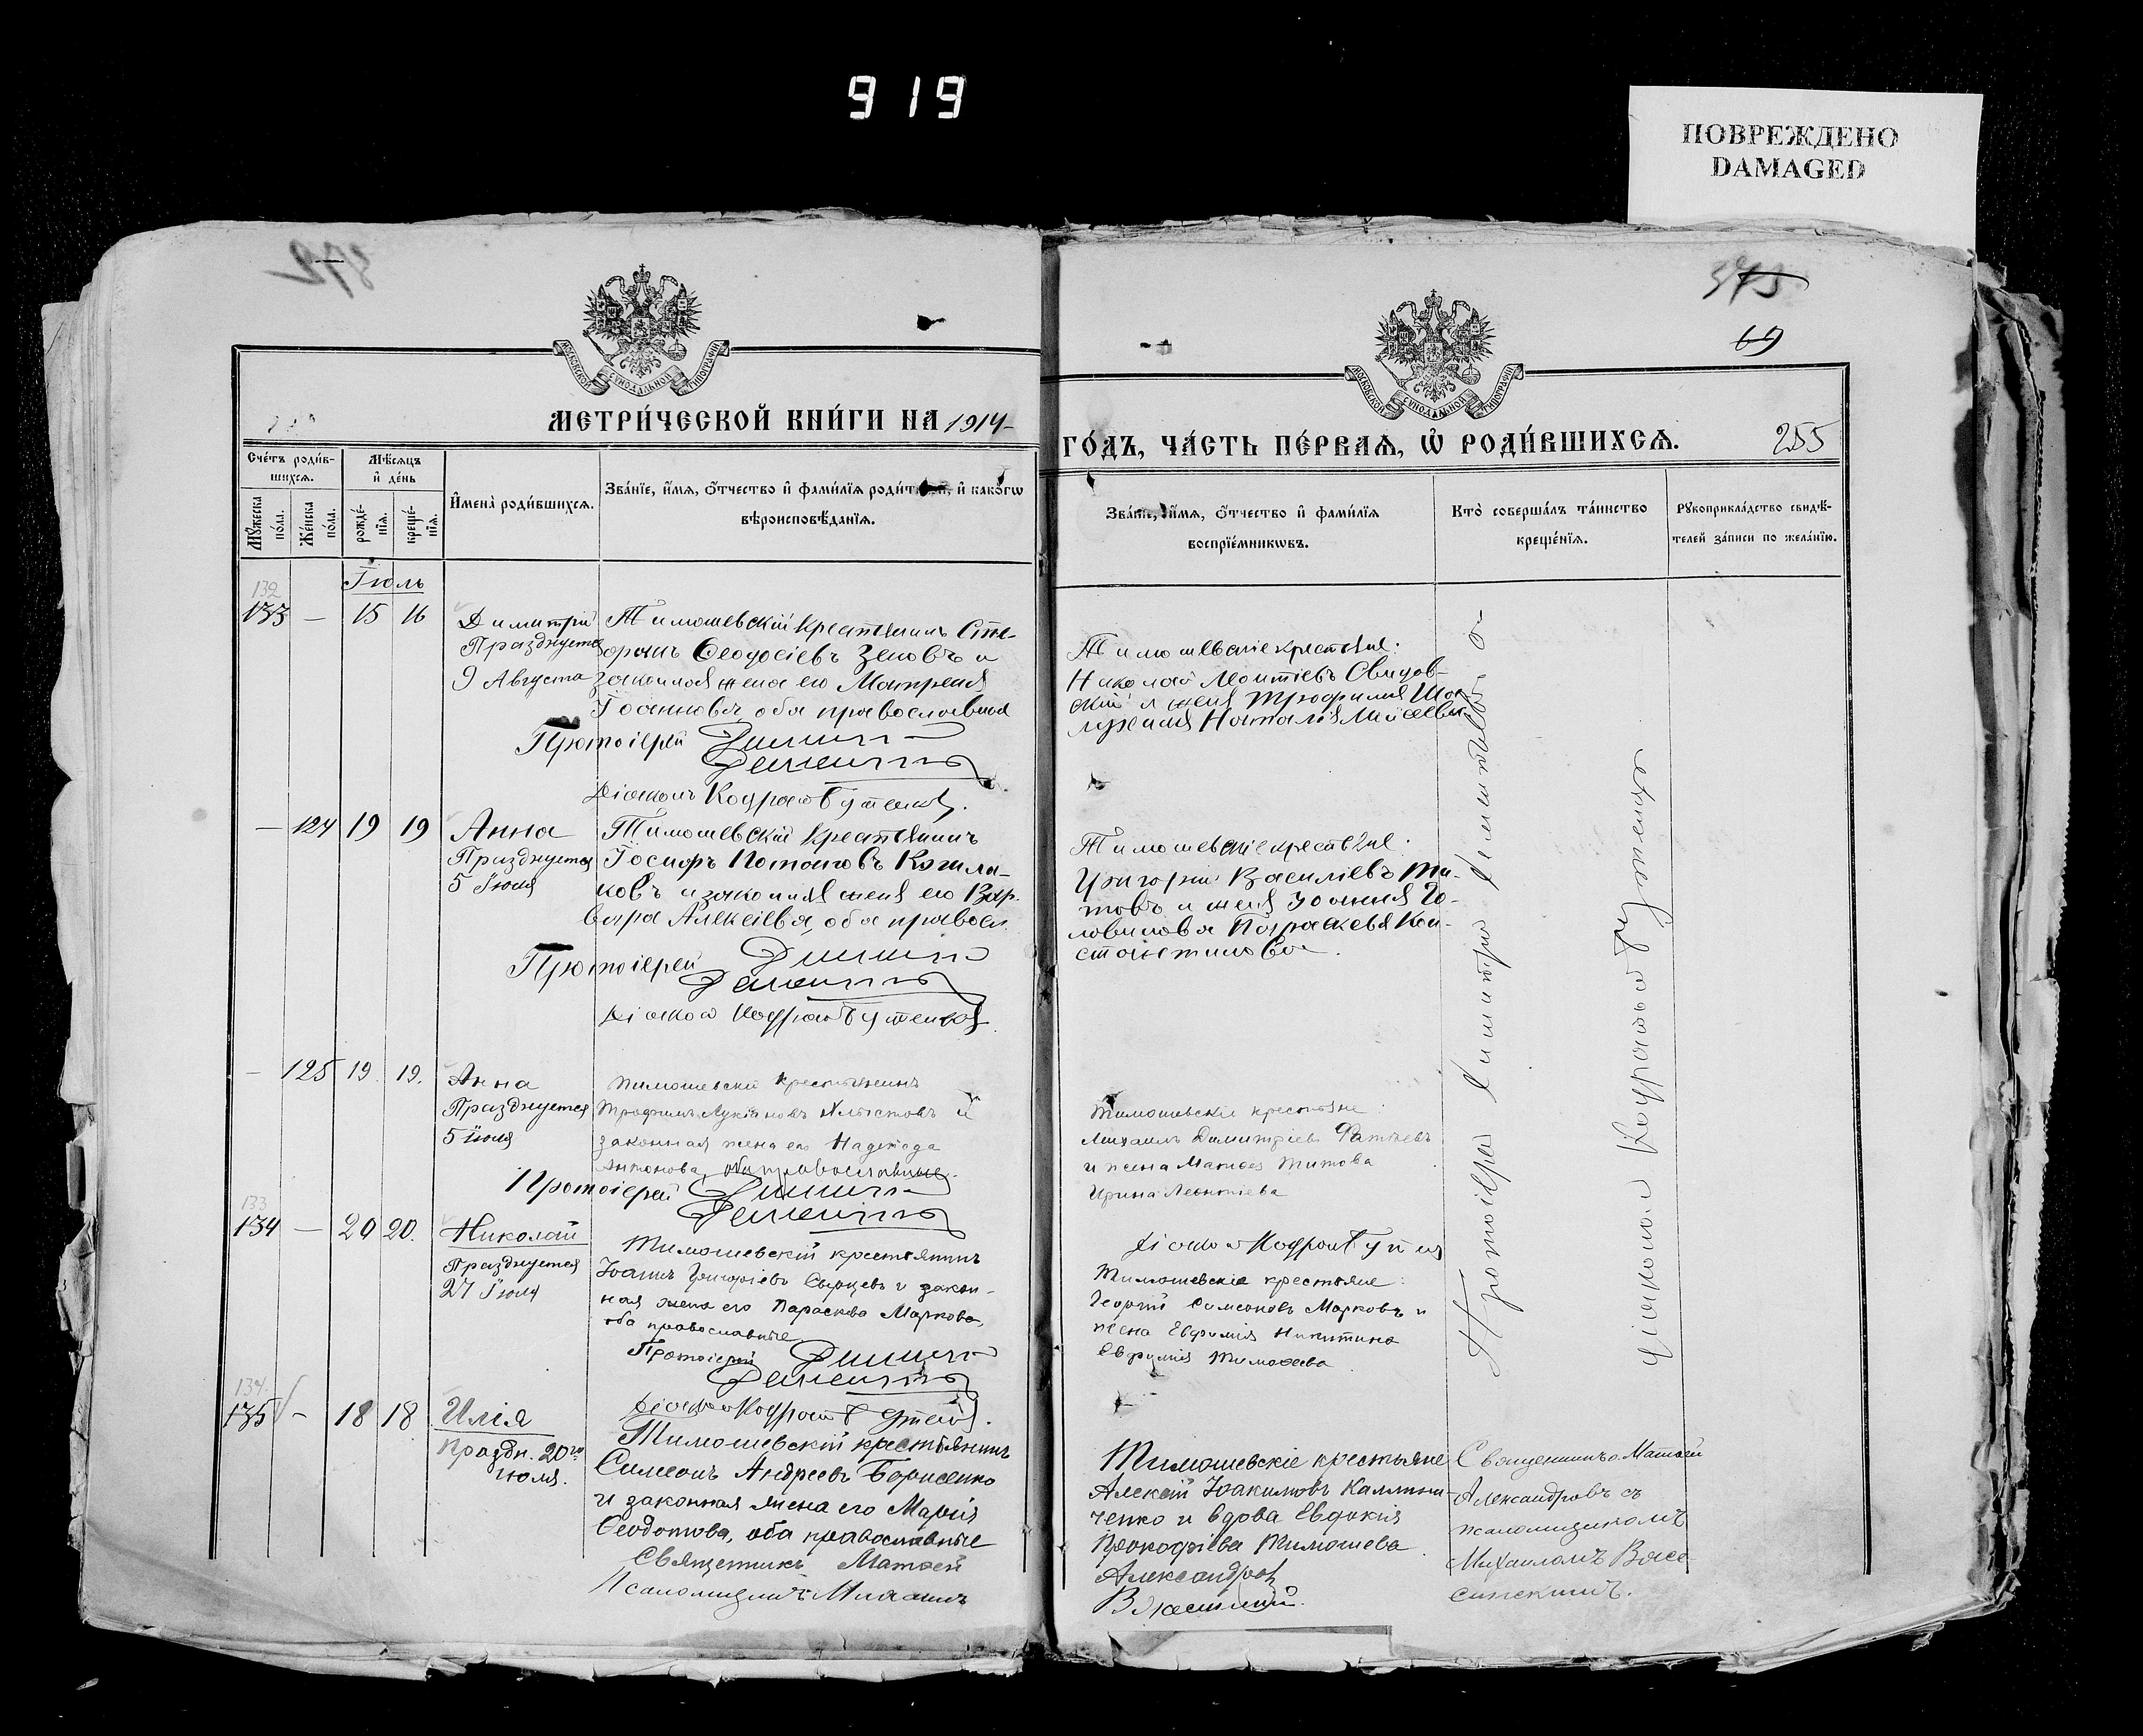 919
ПОВРЕЖДЕНО
DAMAGED
372
373
69
МОСКОВСКОЙ СѴНОДАЛЬНОЙ ТИПОГРАФІИ
МОСКОВСКОЙ СѴНОДАЛЬНОЙ ТИПОГРАФІИ
МЕТРИ́ЧЕСКОЙ КНИ́ГИ НА 1914
ГО́ДЪ, ЧА́СТЬ ПЕ́РВАѦ, Ѡ҆ РОДИ́ВШИХСѦ. 255
Сче́тъ роди́в-
шихсѧ.
Мꙋ́жеска по́ла.
Же́нска по́ла.
Мѣ́сѧцъ
и҆ де́нь
рожде́-
нїѧ.
креще́-
нїѧ.
И҆мена̀ роди́вшихсѧ.
Зва́нїе, и҆́мѧ, ѻ҆́тчество и҆ фами́лїѧ роди́телей, и҆ како́гѡ
вѣроисповѣ́данїѧ.
Зва́нїе, и҆́мѧ, ѻ҆́тчество и҆ фами́лїѧ
воспрїе́мникѡвъ.
Кто̀ соверша́лъ та́инство
креще́нїѧ.
Рꙋкоприкла́дство свидѣ́-
телей за́писи по жела́нїю.
Іюль
132
133 — 15 16
Димитрій
Празднуется
9 Августа
Тимошевскій крестьянинъ
Ѳеодосіевъ Зеновъ и
законная жена его Матрена
Іоаннова, оба православные
Протоіерей Димитрій
Діаконъ Кодратъ Бутенко.
Тимошевскіе крестьяне:
Николай Леонтіевъ Свидов-
скій и жена Трофима
Наталія
— 124 19 19
Анна
Празднуется
5 Іюля
Тимошевскій крестьянинъ
Іосифъ Потаповъ
ковъ и законная жена его Вар-
вара Алексіева, оба правосл.
Протоіерей Димитрій
Діаконъ Кодратъ Бутенко
Тимошевскіе крестьяне:
Григорій Василіевъ Ти-
товъ и жена Іоанна Го-
ловинова Параскева Кон-
стантинова.
— 125 19 19.
Анна
Празднуется
5 Іюля
Тимошевскій крестьянинъ
Трофимъ Лукіановъ Хлыстовъ и
законная жена его Надежда
Антонова, оба православные.
Протоіерей Димитрій
Тимошевскіе крестьяне:
Михаилъ Димитріевъ
и жена Матѳея Титова
Ирина Леонтіева
Діаконъ Кодратъ
133
134 — 20 20.
Николай
Празднуется
27 Іюля
Тимошевскій крестьянинъ
Іоаннъ Григоріевъ и закон-
ная жена его Параскева Маркова,
оба православные
Протоіерей Димитрій
Діаконъ Кодратъ Бутенко.
Тимошевскіе крестьяне:
Георгій Симеоновъ Марковъ и
жена Евфимія Никитина
Евфимія Тимоѳеева
134
135 — 18 18
Илія
Праздн. 20го
іюля.
Тимошевскій крестьянинъ
Симеонъ Андреевъ Борисенко
и законная жена его Марія
Ѳеодотова, оба православные
Священникъ Матѳей
Псаломщикъ Михаилъ
Тимошевскіе крестьяне
Алексій Іоакимовъ Каллини-
ченко и вдова Евдокія
Прокофіева Тимошева
Александровъ
Протоіерей Димитрій
Діаконъ Кодратъ Бутенко
Священникъ Матѳей
Александровъ съ
псаломщикомъ
Михаиломъ